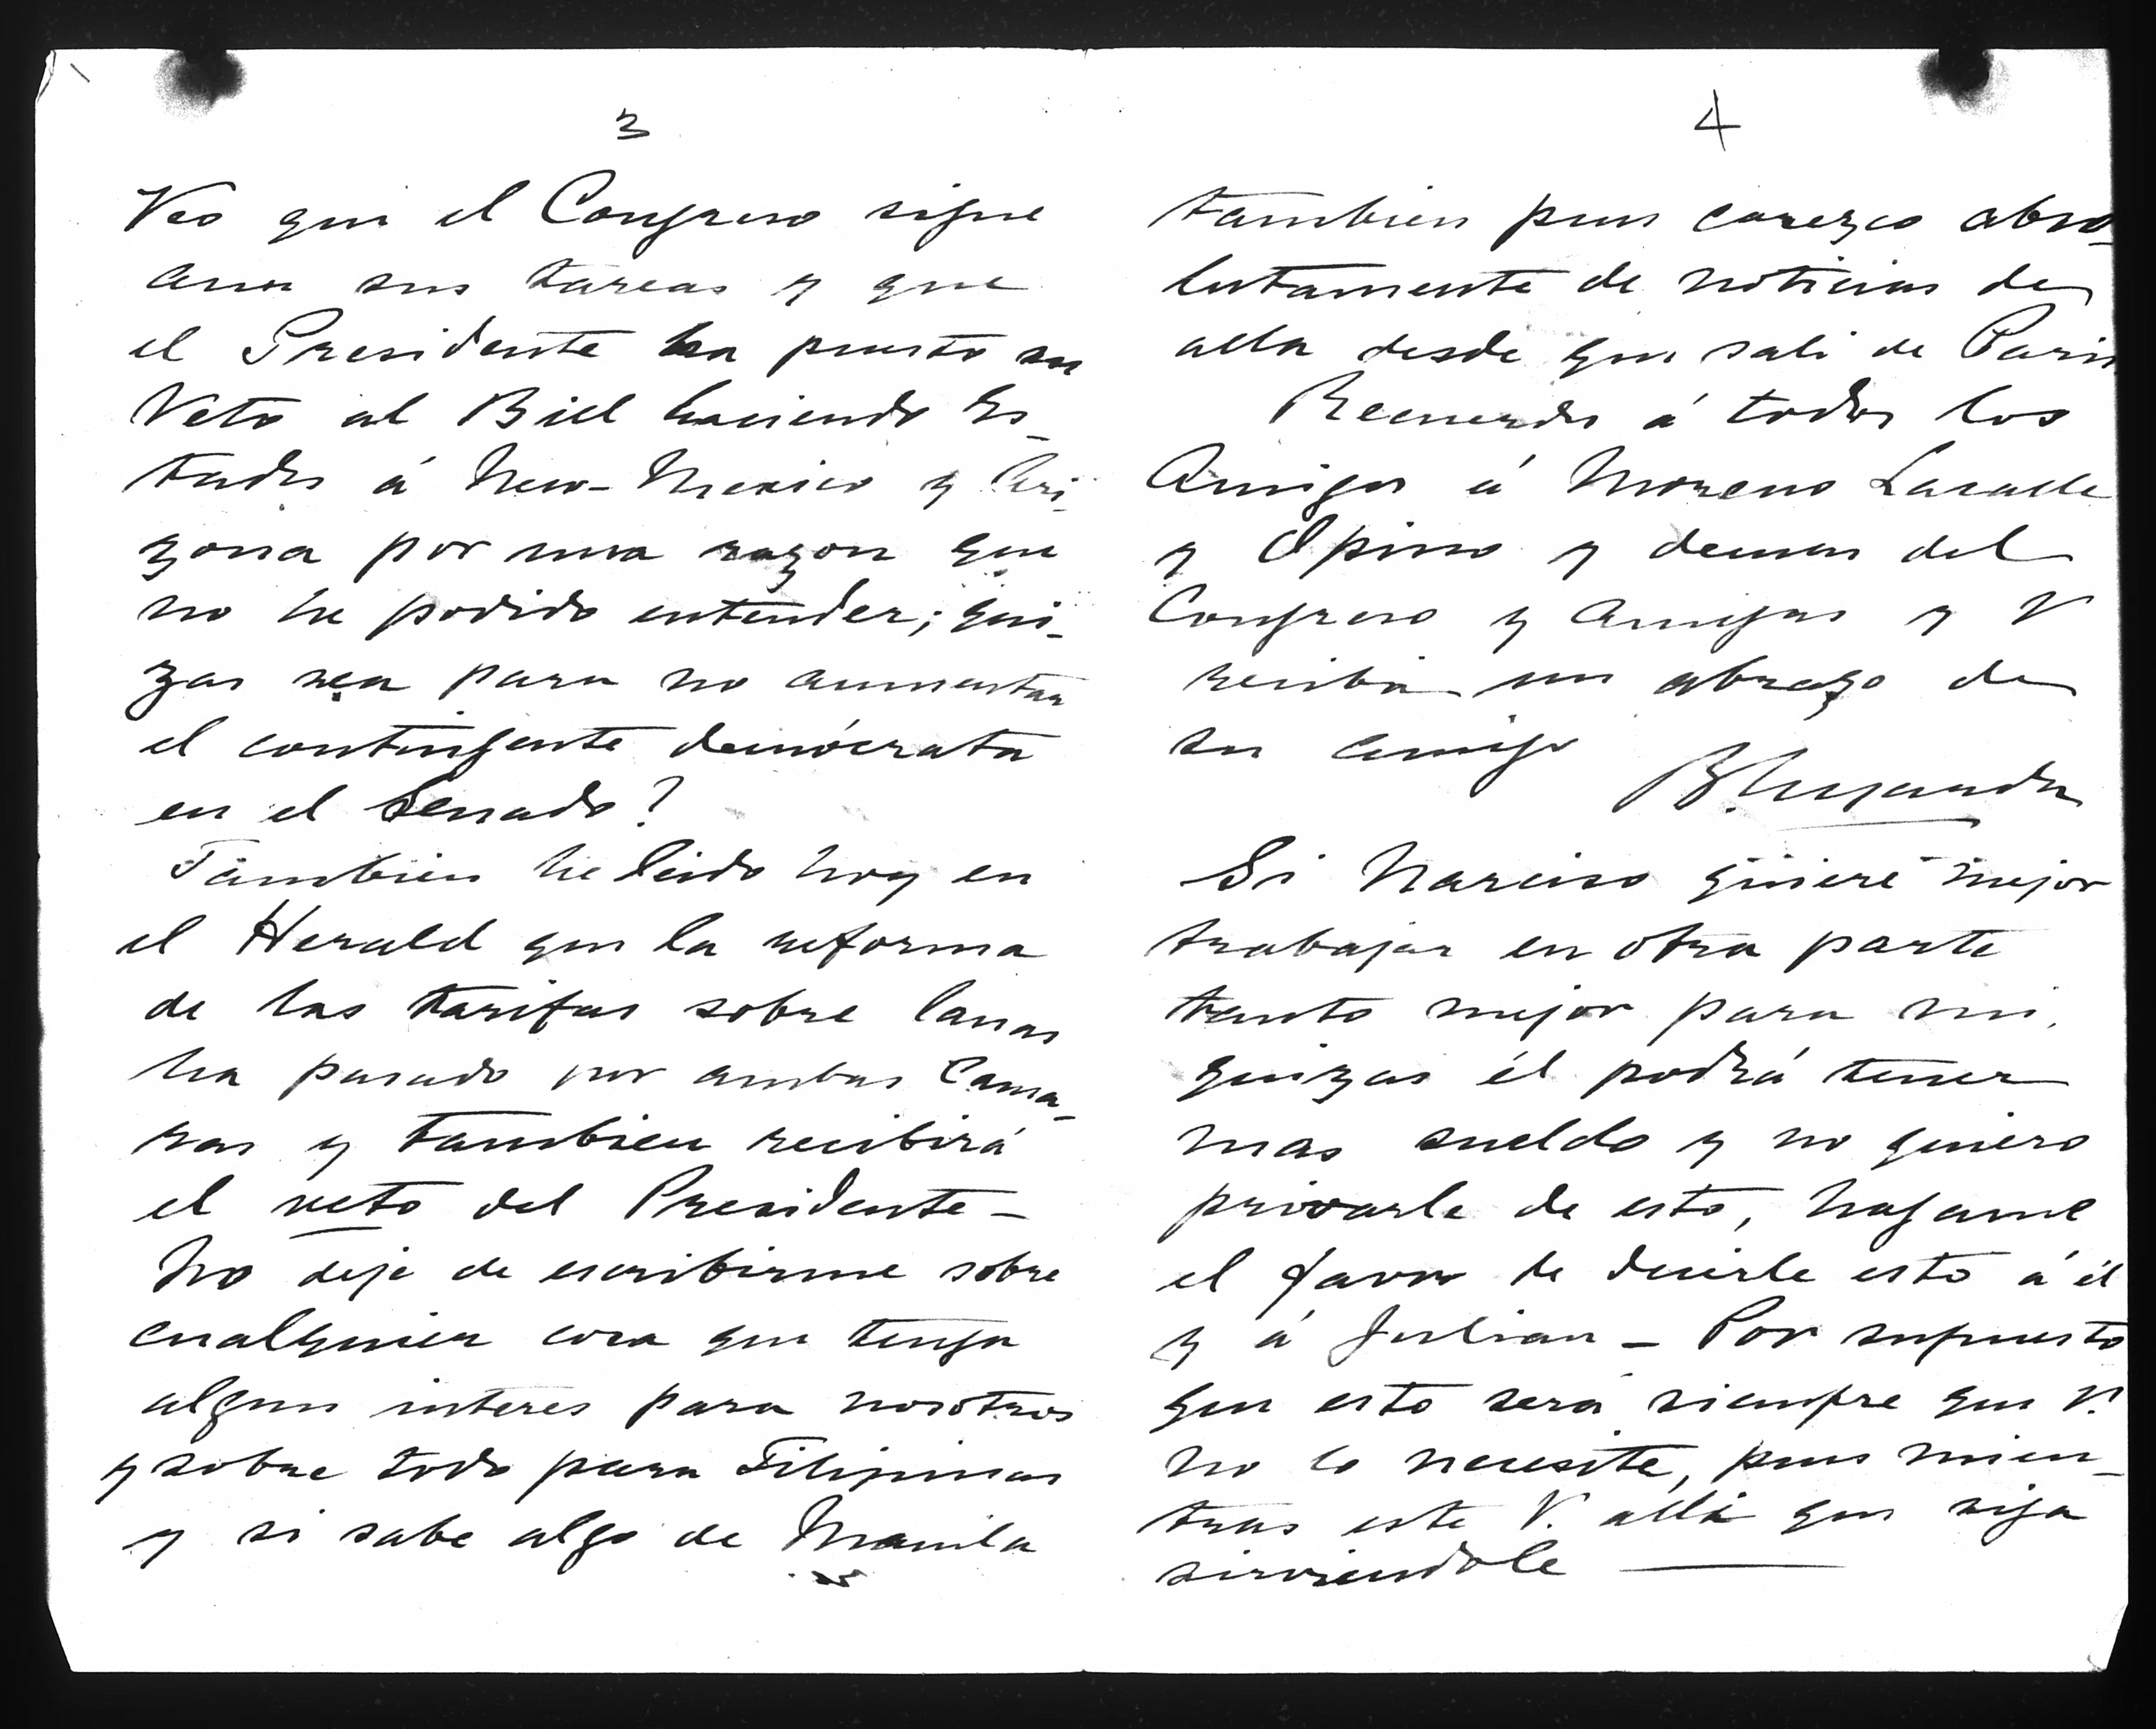 3
Veo que el Congreso sigue
aun sus tareas y que
el Presidente ha puesto su
Veto al Biel haciendo Es-
tados á New-Mexico y Ari-
zona por una razon que
no he podido entender; qui-
zas sea para no aumentar
el contingente demócrata
en el Senado?
Tambien he leido hoy en
el Herald que la reforma
de las tarifas sobre lanas
ha pasado por ambas Cama-
ras y tambien recibirá
el veto del Presidente-
No deje de escribirme sobre
cualquier cosa que tenga
algun interes para nosotros
y sobre todo para Filipinas
y si sabe algo de Manila
4
tambien pues carezco abso-
lutamente de noticias de
alla desde que sali de Paris
Recuerdos á todos los
Amigos á Moreno Lacalle
y Opisso y demas del
Congreso y amigas y V
reciba un abrazo de
su amigo
B. Legarda
Si Narciso quiere mejor
trabajar en otra parte
tanto mejor para mi,
quizas él podrá tener
mas sueldo y no quiero
privarle de esto, hagame
el favor de decirle esto á él
y á Julian - Por supuesto
que esto será siempre que V.
no lo necesite, pues mien-
tras este V. allá que siga
sirviendole